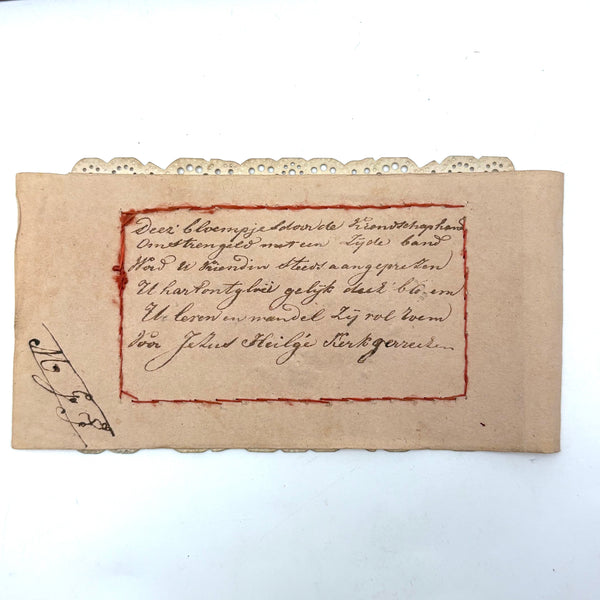 Deez' bloempjes door de Vriendschaphand
Omstrengeld met een Zijde band
Word U Vriendin steeds aangeprezen
U hart ontgloeie gelijk deez' bloem
U leven en wandel Zij vol roem
Voor Jezus Heilge Kerk gerreezen
M. G. F.